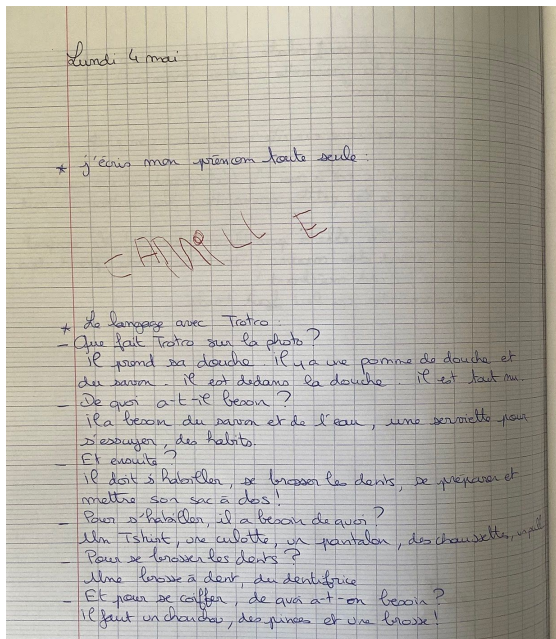 Lundi 4 mai
* j'écris mon prénom toute seule :
CAMILLE
* Le langage avec Trotro :
- Que fait Trotro sur la photo ?
il prend sa douche. il y a une pomme de douche et
du savon. il est dedans la douche. il est tout nu.
- De quoi a-t-il besoin ?
il a besoin du savon et de l'eau, une serviette pour
s'essuyer, des habits.
- Et ensuite ?
il doit s'habiller, se brosser les dents, se préparer et
mettre son sac à dos !
- Pour s'habiller, il a besoin de quoi ?
Un Tshirt, une culotte, un pantalon, des chaussettes,
- Pour se brosser les dents ?
Une brosse à dent, du dentifrice
- Et pour se coiffer, de quoi a-t-on besoin ?
il faut un chouchou, des pinces et une brosse !